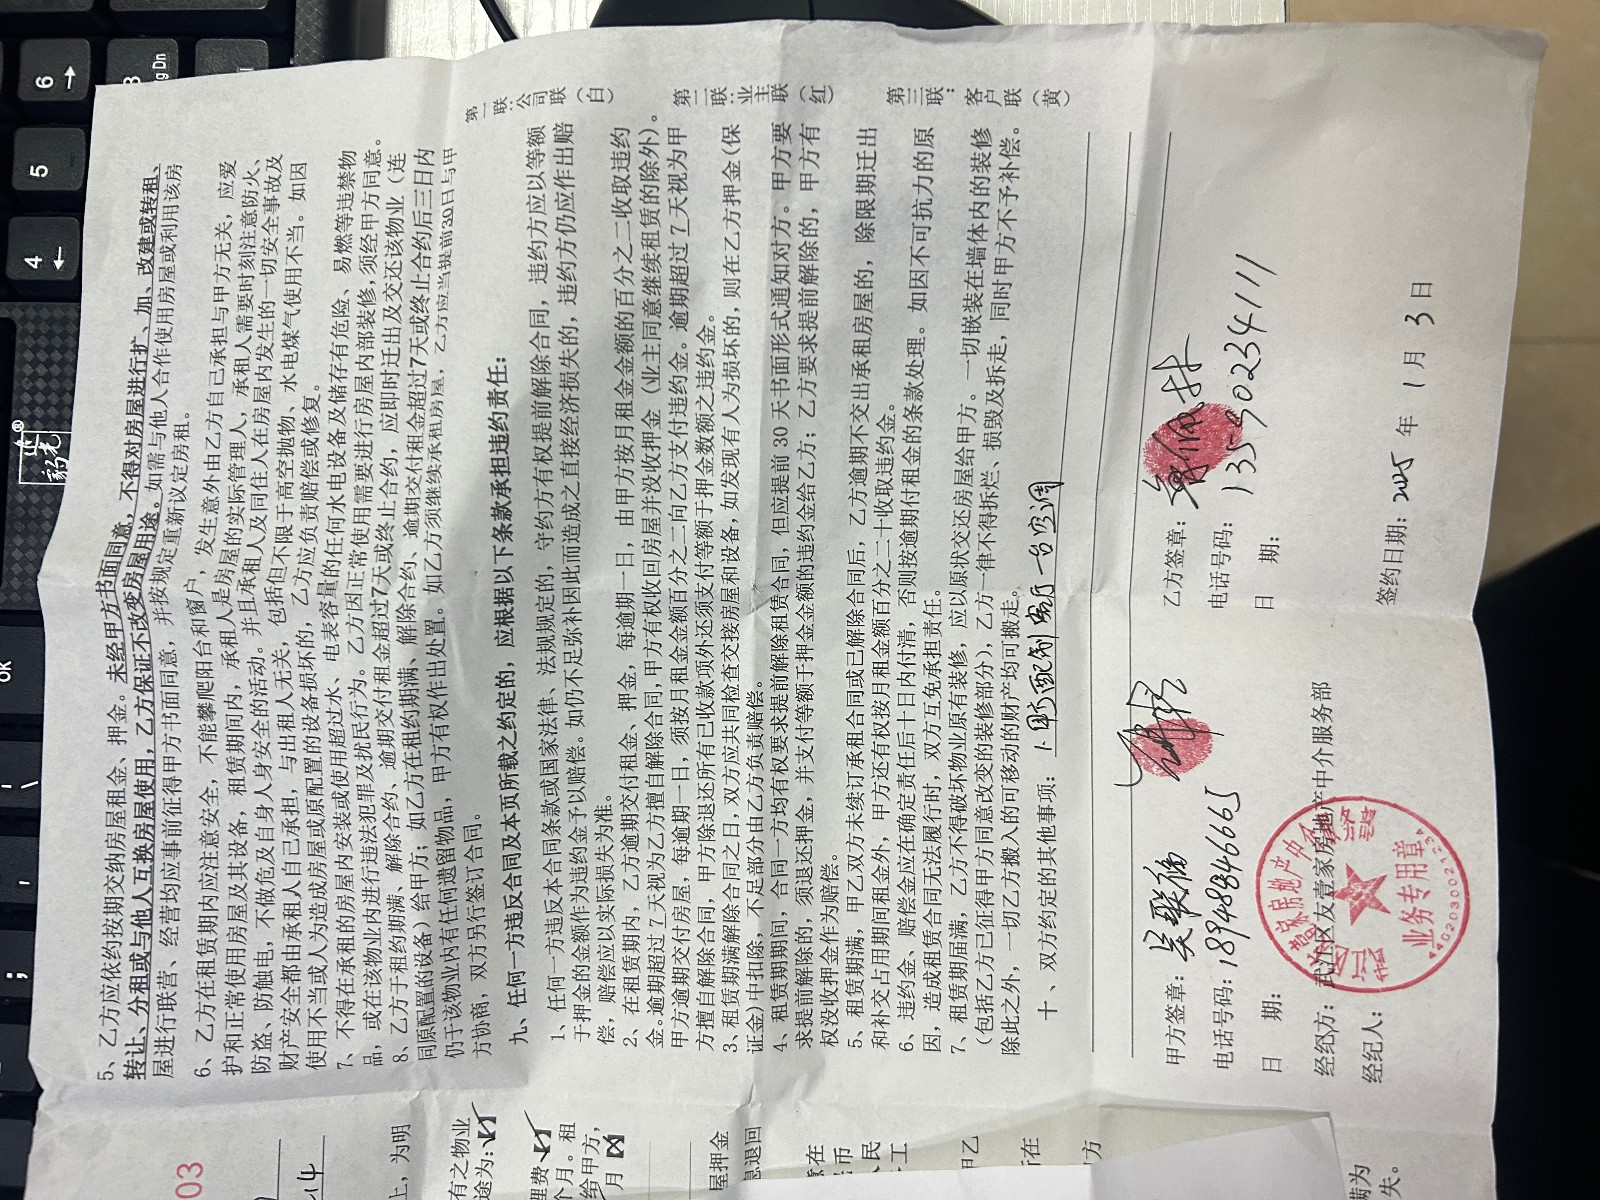 5、乙方应依约按期交纳房屋租金、押金。未经甲方书面同意，不得对房屋进行扩、加、改建或转租、
转让、分租或与他人互换房屋使用，乙方保证不改变房屋用途。如需与他人合作使用房屋或利用该房
屋进行联营、经营均应事前征得甲方书面同意，并按规定重新议定房租。
6、乙方在租赁期内应注意安全，不能攀爬阳台和窗户，发生意外由乙方自己承担与甲方无关，应爱
护和正常使用房屋及其设备，租赁期间内，承租人是房屋的实际管理人，承租人需要时刻注意防火、
防盗、防触电，不做危及自身人身安全的活动。并且承租人及同住人在房屋内发生的一切安全事故及
财产安全都由承租人自己承担，与出租人无关，包括但不限于高空抛物、水电煤气使用不当。如因
使用不当或人为造成房屋或原配置的设备损坏的，乙方应负责赔偿或修复。
7、不得在承租的房屋内安装或使用超过水、电表容量的任何水电设备及储存有危险、易燃等违禁物
品，或在该物业内进行违法犯罪及扰民行为。乙方因正常使用需要进行房屋内部装修，须经甲方同意。
8、乙方于租约期满、解除合约、逾期交付租金超过7天或终止合约，应即时迁出及交还该物业（连
同原配置的设备）给甲方；如乙方在租约期满、解除合约、逾期交付租金超过7天或终止合约后三日内
仍于该物业内有任何遗留物品，甲方有权作出处置。如乙方须继续承租房屋，乙方应当提前30日与甲
方协商，双方另行签订合同。
九、任何一方违反合同及本页所载之约定的，应根据以下条款承担违约责任：
1、任何一方违反本合同条款或国家法律、法规规定的，守约方有权提前解除合同，违约方应以等额
于押金的金额作为违约金予以赔偿。如仍不足弥补因此而造成之直接经济损失的，违约方仍应作出赔
偿，赔偿应以实际损失为准。
2、在租赁期内，乙方逾期交付租金、押金，每逾期一日，由甲方按月租金金额的百分之二收取违约
金。逾期超过 7 天视为乙方擅自解除合同，甲方有权收回房屋并没收押金（业主同意继续租赁的除外）。
甲方逾期交付房屋，每逾期一日，须按月租金金额百分之二向乙方支付违约金。逾期超过 7 天视为甲
方擅自解除合同，甲方除退还所有已收款项外还须支付等额于押金数额之违约金。
3、租赁期满解除合同之日，双方应共同检查交接房屋和设备，如发现有人为损坏的，则在乙方押金（保
证金）中扣除，不足部分由乙方负责赔偿。
4、租赁期期间，合同一方均有权要求提前解除租赁合同，但应提前 30 天书面形式通知对方。甲方要
求提前解除的，须退还押金，并支付等额于押金金额的违约金给乙方；乙方要求提前解除的，甲方有
权没收押金作为赔偿。
5、租赁期满，甲乙双方未续订承租合同或已解除合同后，乙方逾期不交出承租房屋的，除限期迁出
和补交占用期间租金外，甲方还有权按月租金额百分之二十收取违约金。
6、违约金、赔偿金应在确定责任后十日内付清，否则按逾期付租金的条款处理。如因不可抗力的原
因，造成租赁合同无法履行时，双方互免承担责任。
7、租赁期届满，乙方不得破坏物业原有装修，应以原状交还房屋给甲方。一切嵌装在墙体内的装修
（包括乙方已征得甲方同意改变的装修部分），乙方一律不得拆烂、损毁及拆走，同时甲方不予补偿。
除此之外，一切乙方搬入的可移动的财产均可搬走。
十、双方约定的其他事项：
甲方签章：
电话号码：18948846665
日 期：
经纪方：武江区友壹家房地产中介服务部
经纪人：
乙方签章：
电话号码：13590234111
日 期：
签约日期：2025 年 1 月 3 日
业务专用章
第一联：公司联（白）
第二联：业主联（红）
第三联：客户联（黄）
03
上，为明
有之物业
途为：
理费
个月。租
给甲方，
月
屋押金
息退回
甲乙
失。
6
5
4
ok